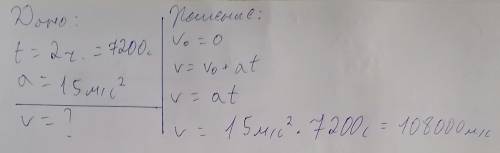 Дано:
t = 2ч. = 7200с
a = 15 м/с²
v = ?
Решение:
v₀ = 0
v = v₀ + at
v = at
v = 15 м/с² · 7200с = 108000 м/с